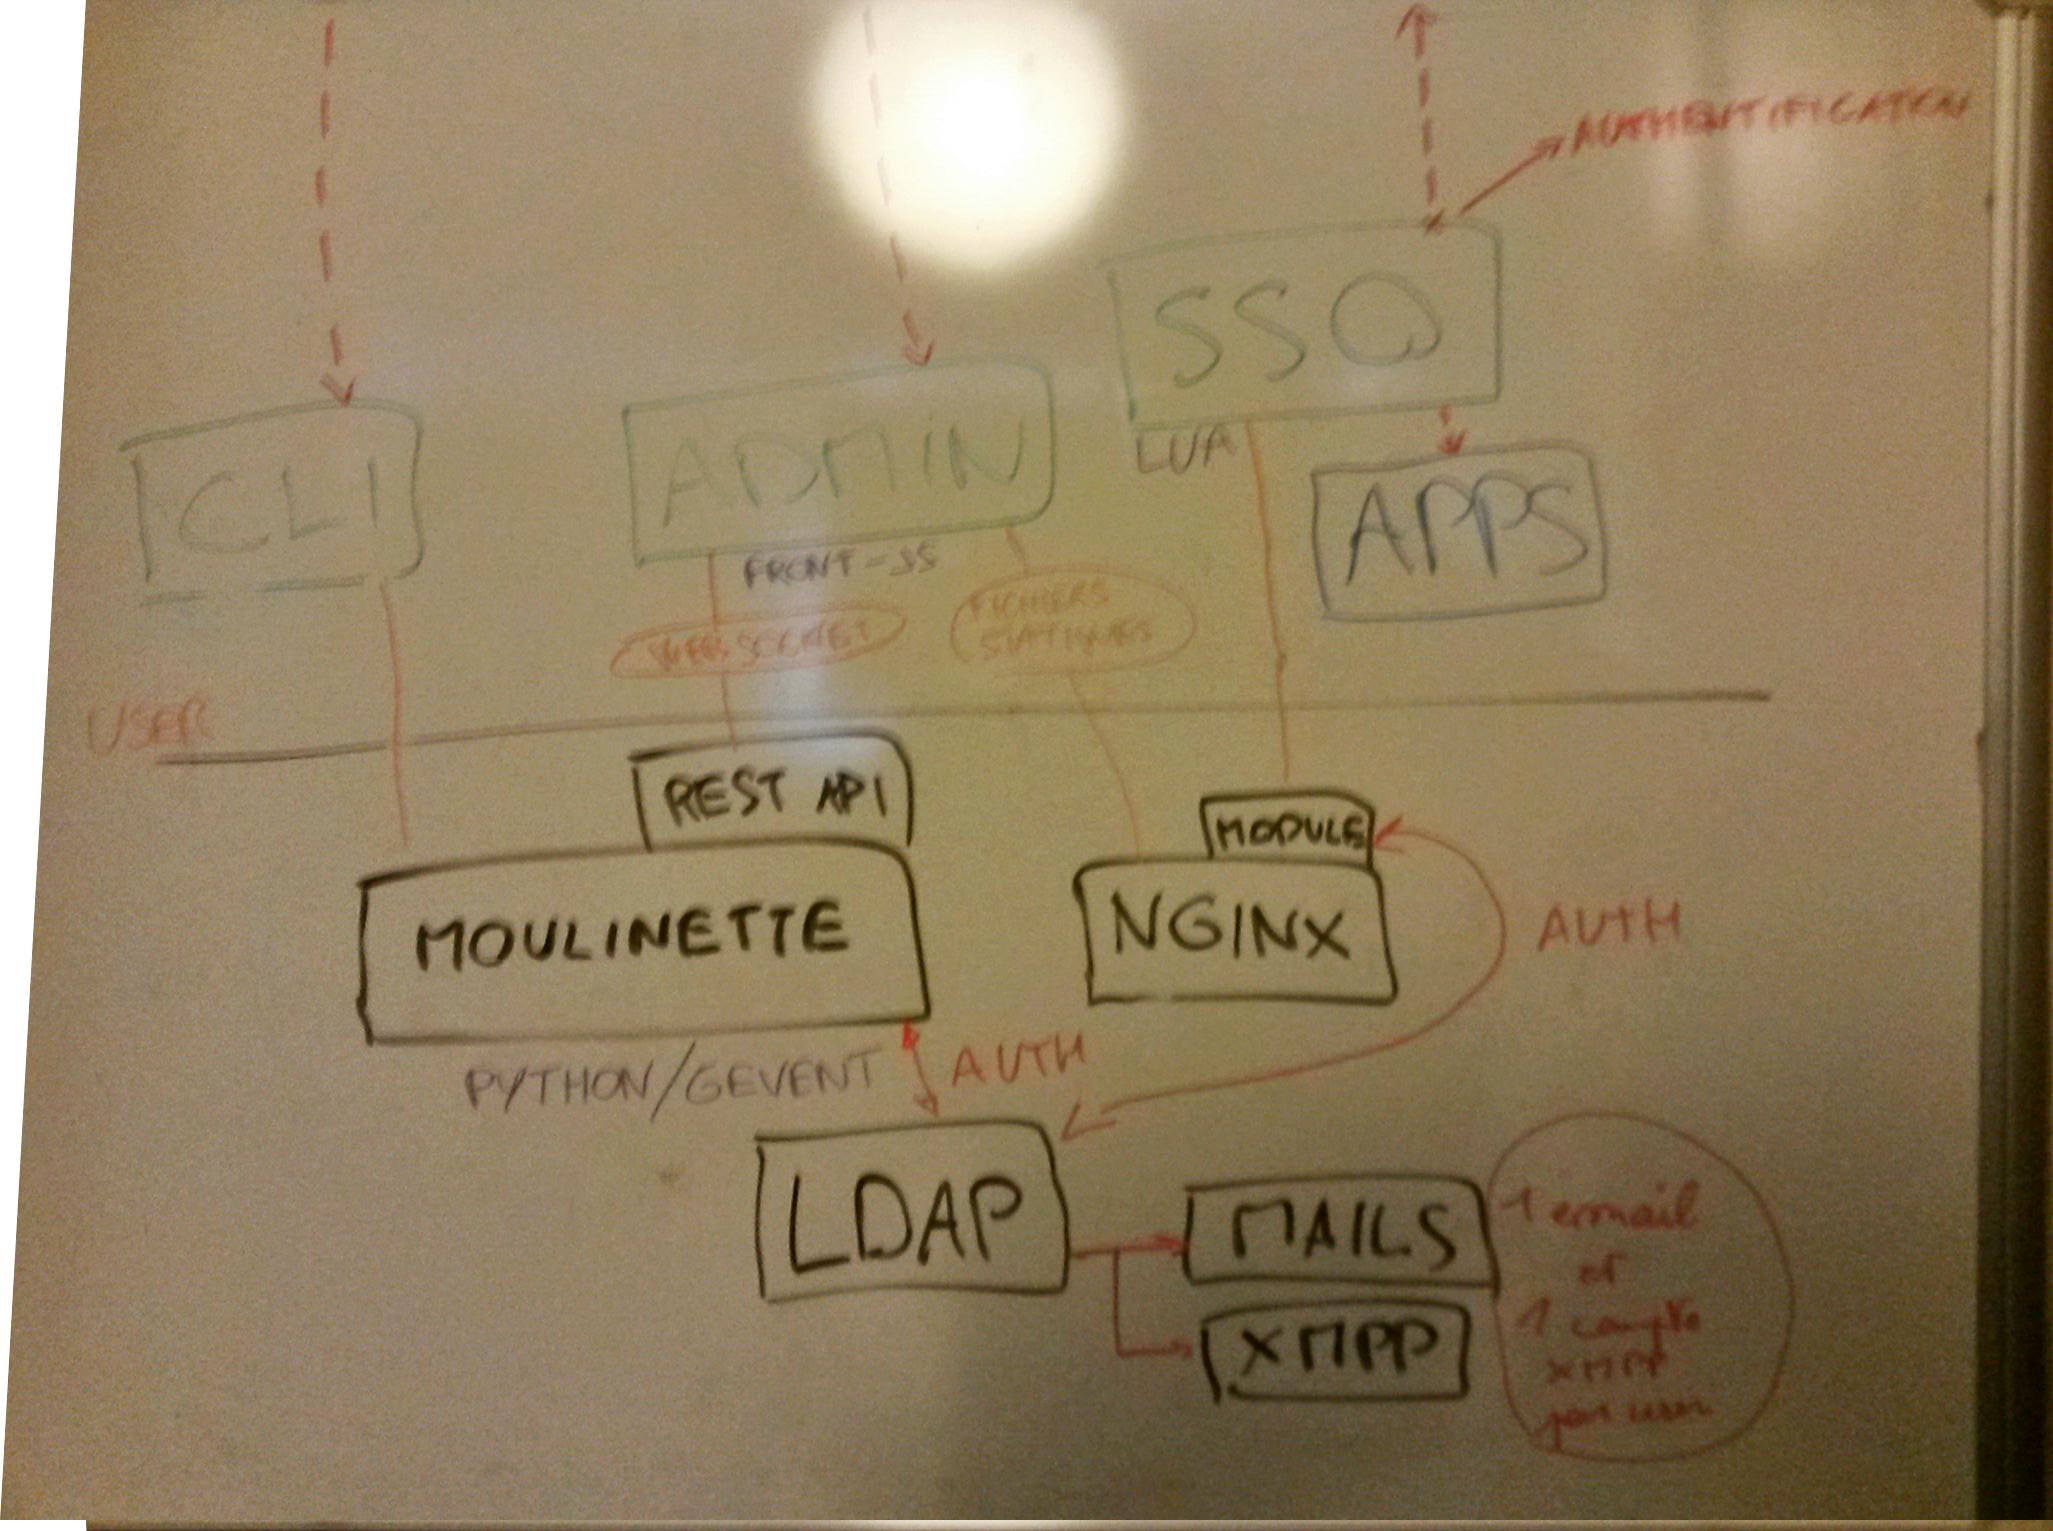 AUTHENTIFICATION
SSO
CLI
ADMIN
LUA
APPS
FRONT-JS
WEBSOCKET
FICHIERS
STATIQUES
USER
REST API
MODULE
MOULINETTE
NGINX
AUTH
PYTHON/GEVENT
AUTH
LDAP
MAILS
XMPP
1 email
et
1 compte
XMPP
par user